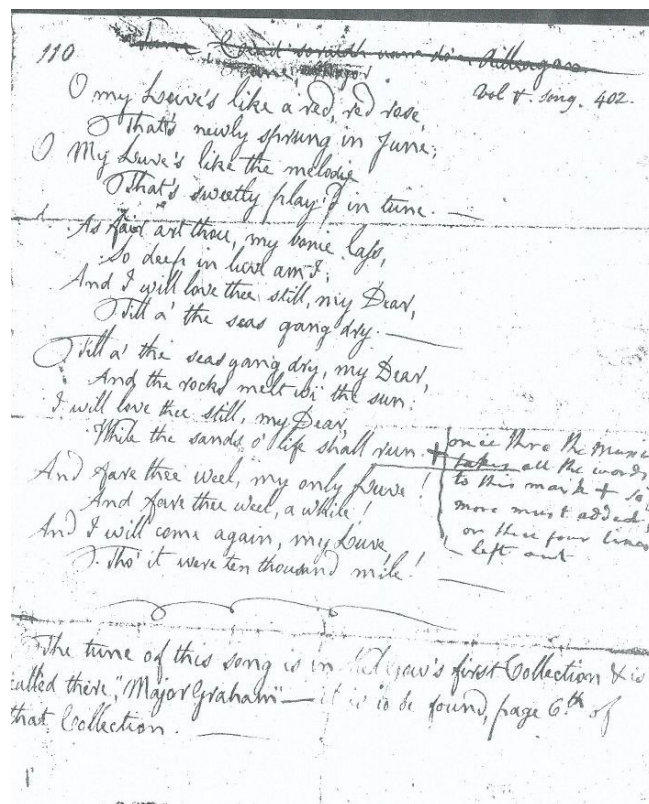 110
Major
Vol 4. Song. 402.
O my Luve's like a red, red rose,
That's newly sprung in June;
O My Luve's like the melodie
That's sweetly play'd in tune. —
As fair art thou, my bonie lass,
So deep in luve am I;
And I will love thee still, my Dear,
Till a' the seas gang dry. —
Till a' the seas gang dry, my Dear,
And the rocks melt wi' the sun:
I will love thee still, my Dear,
While the sands o' life shall run. +
And fare thee weel, my only Luve!
And fare thee weel, a while!
And I will come again, my Luve,
Tho' it were ten thousand mile! —
once thro the Music
takes all the words
to this mark + so
more must added
or these four lines
left out
The tune of this song is in first Collection & is
called there, "Major Graham" — it is to be found, page 6th of
that Collection. —